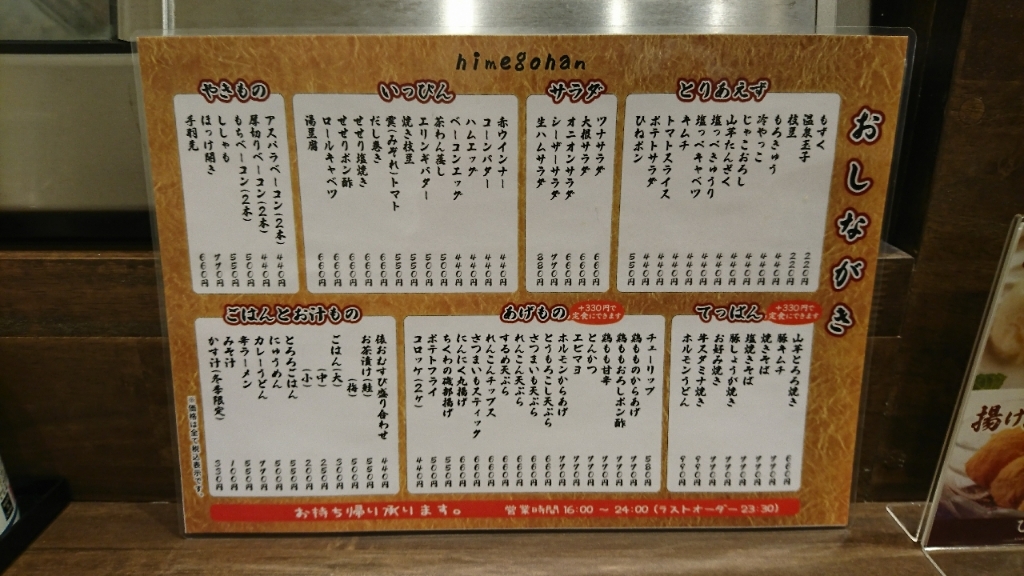 himegohan
おしながき
とりあえず
もずく 220円
温泉玉子 220円
枝豆 440円
もろきゅう 440円
冷やっこ 440円
じゃこおろし 440円
山芋たんざく 440円
塩っぺきゅうり 440円
塩っぺキャベツ 440円
キムチ 440円
トマトスライス 440円
ポテトサラダ 440円
ひねポン 550円
サラダ
ツナサラダ 660円
大根サラダ 660円
オニオンサラダ 660円
シーザーサラダ 770円
生ハムサラダ 880円
いっぴん
赤ウインナー 440円
コーンバター 440円
ハムエッグ 440円
ベーコンエッグ 440円
茶わん蒸し
エリンギバター
焼き枝豆 550円
雲(みぞれ)トマト 550円
だし巻き 660円
せせり塩焼き 660円
せせりポン酢 660円
ロールキャベツ 660円
湯豆腐 660円
やきもの
アスパラベーコン(2本) 440円
厚切りベーコン(2本) 440円
もちベーコン(2本)
ししゃも 550円
ほっけ開き 770円
手羽先 660円
てっぱん
+330円で
定食にできます
山芋とろろ焼き 660円
豚キムチ 770円
焼きそば 770円
塩焼きそば 770円
豚しょうが焼き 770円
お好み焼き 770円
牛スタミナ焼き 990円
ホルモンうどん 990円
あげもの
+330円で
定食にできます
チューリップ 580円
鶏もものからあげ 770円
鶏ももおろしポン酢 770円
鶏もも甘辛 770円
とんかつ 770円
エビマヨ 770円
ホルモンからあげ 770円
とうもろこし天ぷら 660円
さつまいも天ぷら 660円
れんこん天ぷら 660円
するめ天ぷら 660円
れんこんチップス 660円
さつまいもスティック 660円
にんにく丸揚げ 660円
ちくわの磯部揚げ 550円
ポテトフライ 550円
コロッケ(2ケ) 440円
ごはんとお汁もの
俵おむすび盛り合わせ 440円
お茶漬け(鮭) 550円
(梅)
ごはん(大) 300円
(中) 250円
(小) 200円
とろろごはん 550円
にゅうめん
カレーうどん 770円
辛ラーメン 550円
みそ汁 100円
かす汁(冬季限定) 330円
※価格は全て税込表示です。
お持ち帰り承ります。 営業時間 16:00 ～ 24:00 (ラストオーダー 23:30)
揚げ